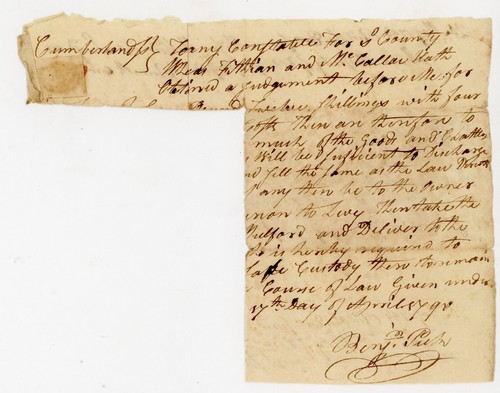 Cumberland ss} To any Constable For sd County
Wheas Fithian and McCallar Hath
Obtined a Judgement before Me for
Twelve Shillings with four
Cost Then are therefore to
much of the Goods and Chattles
Will be Sufficient to Discharge
and sell the same as the Law Directs
if any there be to the owner
whereon to Levy then take the
Mulford and Deliver to the
who is hereby required to
safe Custody there to remain
Course of Law Given under
17th Day of April 1790
Benjn. Peck